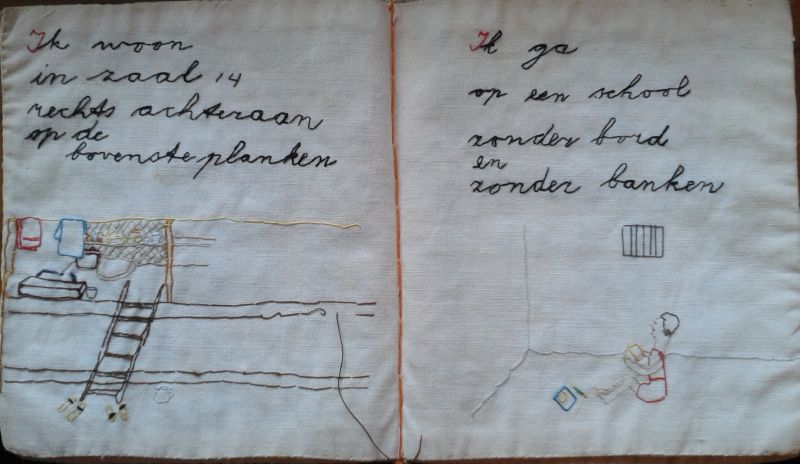 Ik woon
in zaal 14
rechts achteraan
op de
bovenste planken
Ik ga
op een school
zonder bord
en
zonder banken